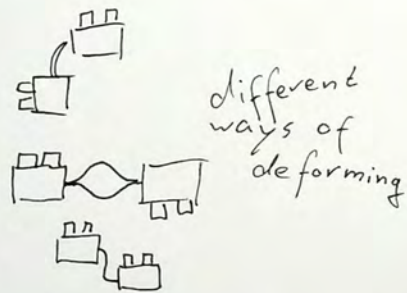 different
ways of
deforming